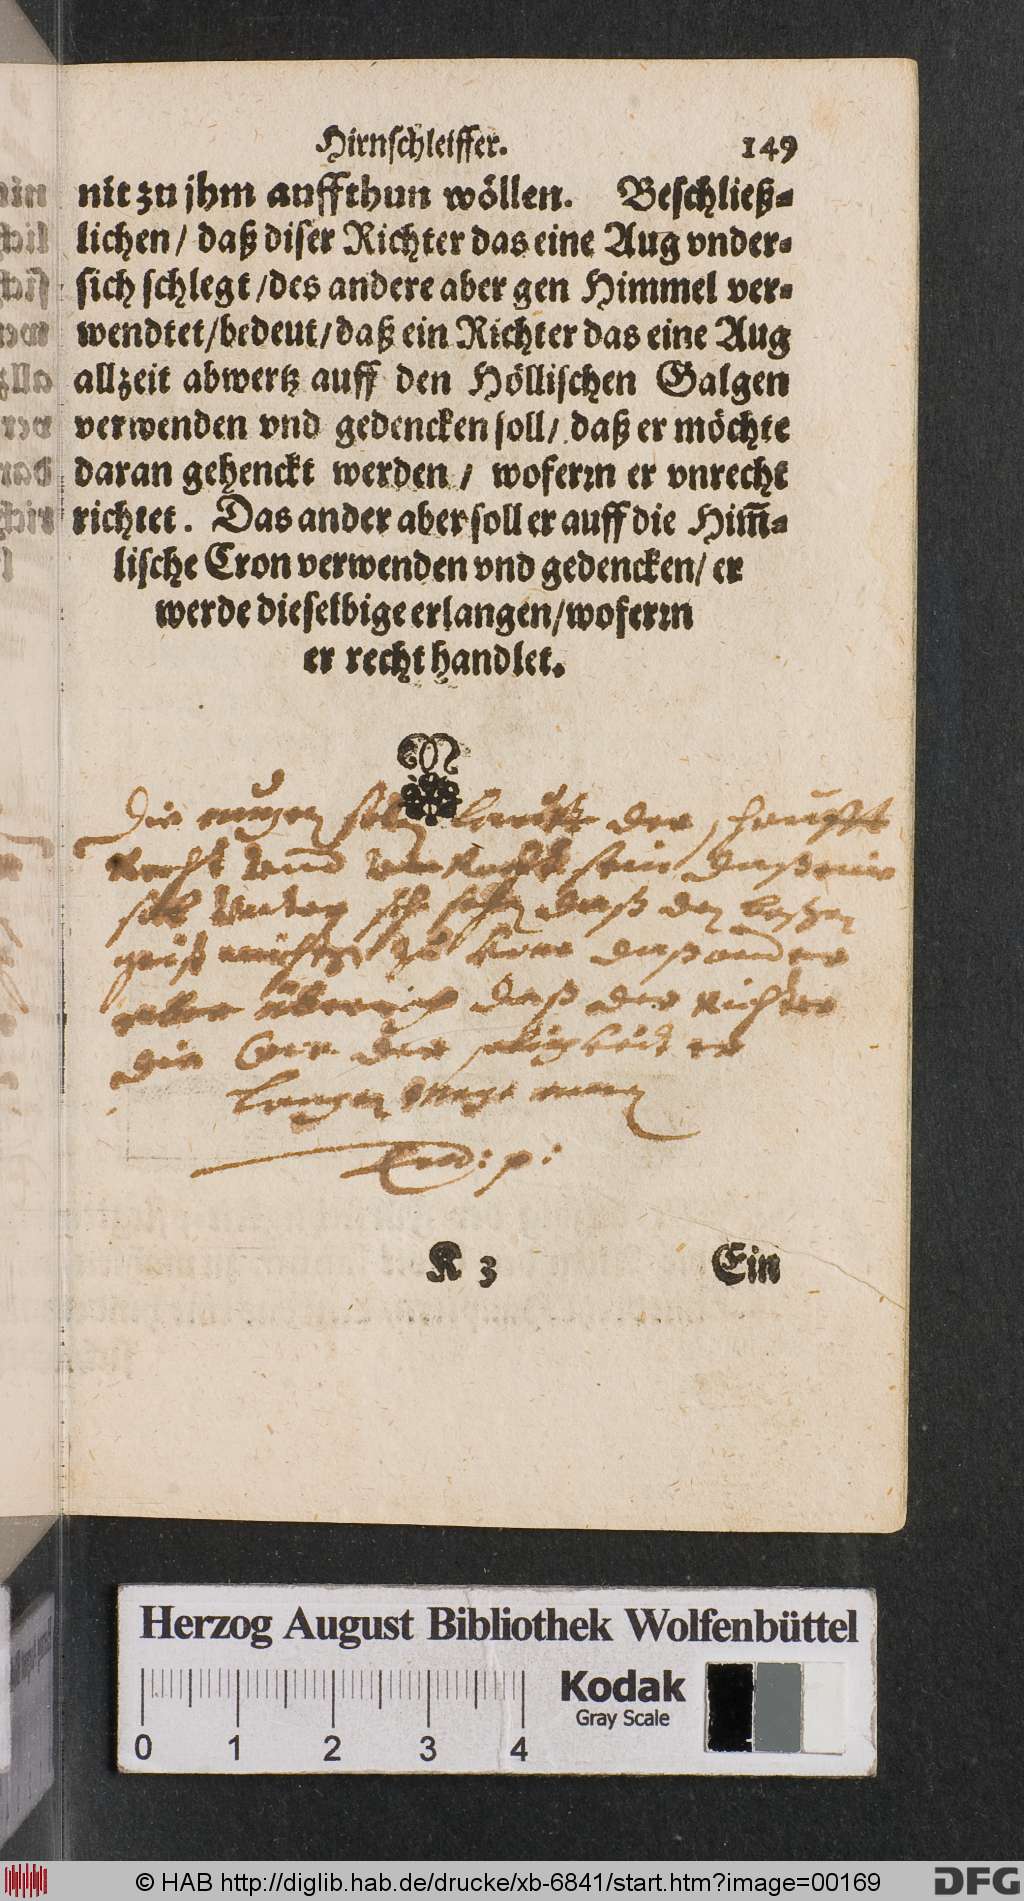 Hirnschleiffer. 149
nit zu jhm auffthun wöllen. Beschließ-
lichen / daß diser Richter das eine Aug vnder-
sich schlegt / des andere aber gen Himmel ver-
wendtet / bedeut / daß ein Richter das eine Aug
allzeit abwertz auff den Höllischen Galgen
verwenden vnd gedencken soll / daß er möchte
daran gehenckt werden / woferꝛn er vnrecht
richtet. Das ander aber soll er auff die Him̃-
lische Cron verwenden vnd gedencken / er
werde dieselbige erlangen / woferꝛn
er recht handlet.
Die augen
Recht vnd sein daß eine
daß den
zu daß andere
aber daß der Richter
die Cron der er
langen
End: p:
K 3 Ein
Herzog August Bibliothek Wolfenbüttel
Kodak
Gray Scale
0 1 2 3 4
© HAB http://diglib.hab.de/drucke/xb-6841/start.htm?image=00169
DFG